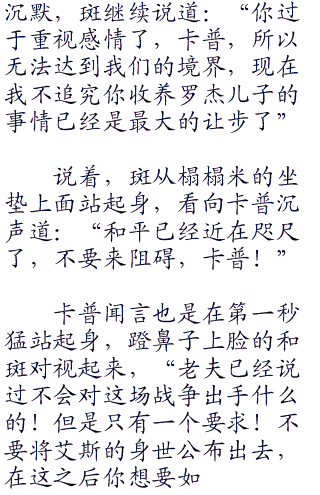 沉默，斑继续说道：“你过
于重视感情了，卡普，所以
无法达到我们的境界，现在
我不追究你收养罗杰儿子的
事情已经是最大的让步了”
说着，斑从榻榻米的坐
垫上面站起身，看向卡普沉
声道：“和平已经近在咫尺
了，不要来阻碍，卡普！”
卡普闻言也是在第一秒
猛站起身，蹬鼻子上脸的和
斑对视起来，“老夫已经说
过不会对这场战争出手什么
的！但是只有一个要求！不
要将艾斯的身世公布出去，
在这之后你想要如